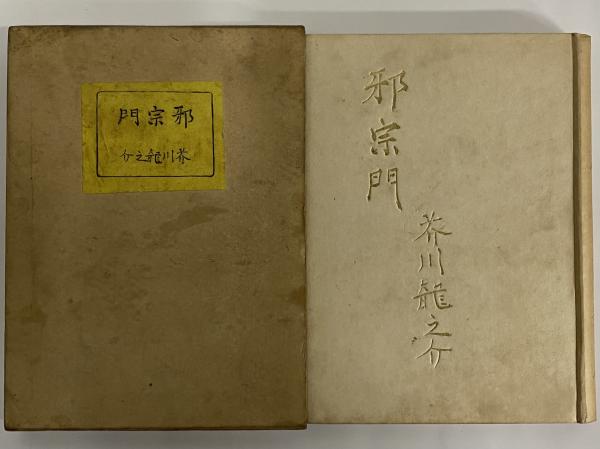 邪宗門
芥川龍之介
邪宗門
芥川龍之介